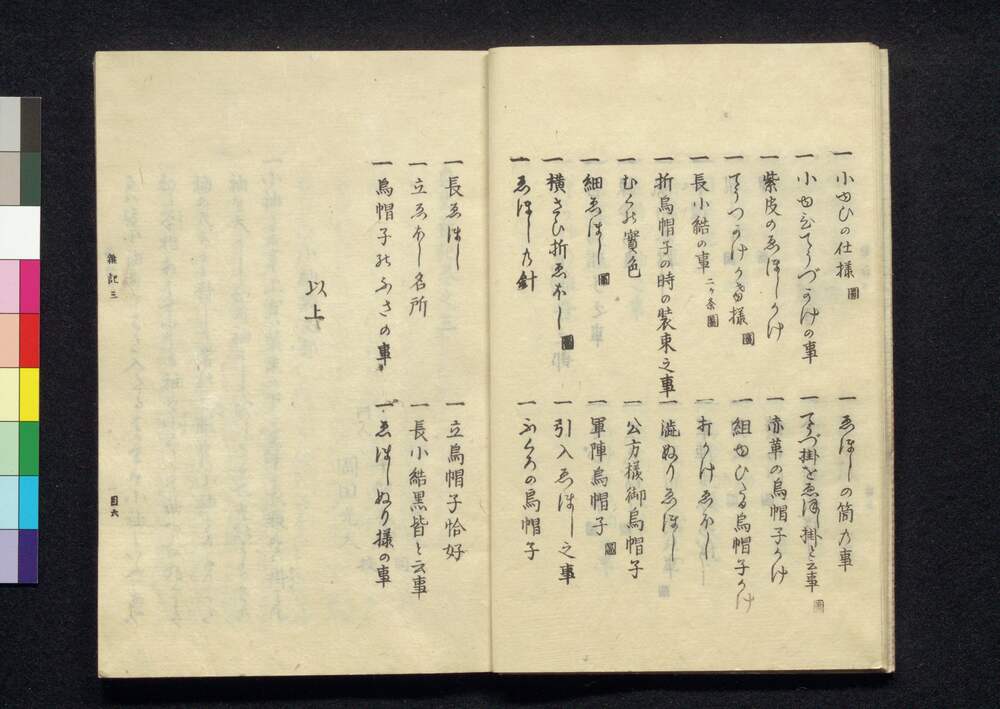 一 小ゆひの仕様 圖
一 ゑぼしの筒乃事
一 小ゆひてうづがけの事
一 てうづ掛をゑぼし掛と云事 圖
一 紫皮のゑぼしかけ
一 赤革の烏帽子かけ
一 てうつかけかけ様 圖
一 組ゆひたる烏帽子かけ
一 長小結の事 二ケ条 圖
一 打かけゑぼし
一 折烏帽子の時の装束之事
一 澁ぬりゑぼし
一 公方様御烏帽子
一 細ゑぼし 圖
一 軍陣烏帽子 圖
一 横さひ折ゑぼし 圖
一 引入ゑぼし之事
一 ゑぼし乃針
一 ふくろの烏帽子
一 長ゑぼし
一 立烏帽子恰好
一 立ゑぼし名所
一 長小結黒皆と云事
一 烏帽子のふさの事
一 ゑぼしぬり様の事
以上
雑記三
目六